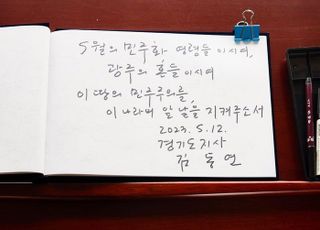 5월의 민주화 영령들이시여,
광주의 혼들이시여
이 땅의 민주주의를,
이 나라의 앞날을 지켜주소서
2023. 5. 12.
경기도지사
김동연